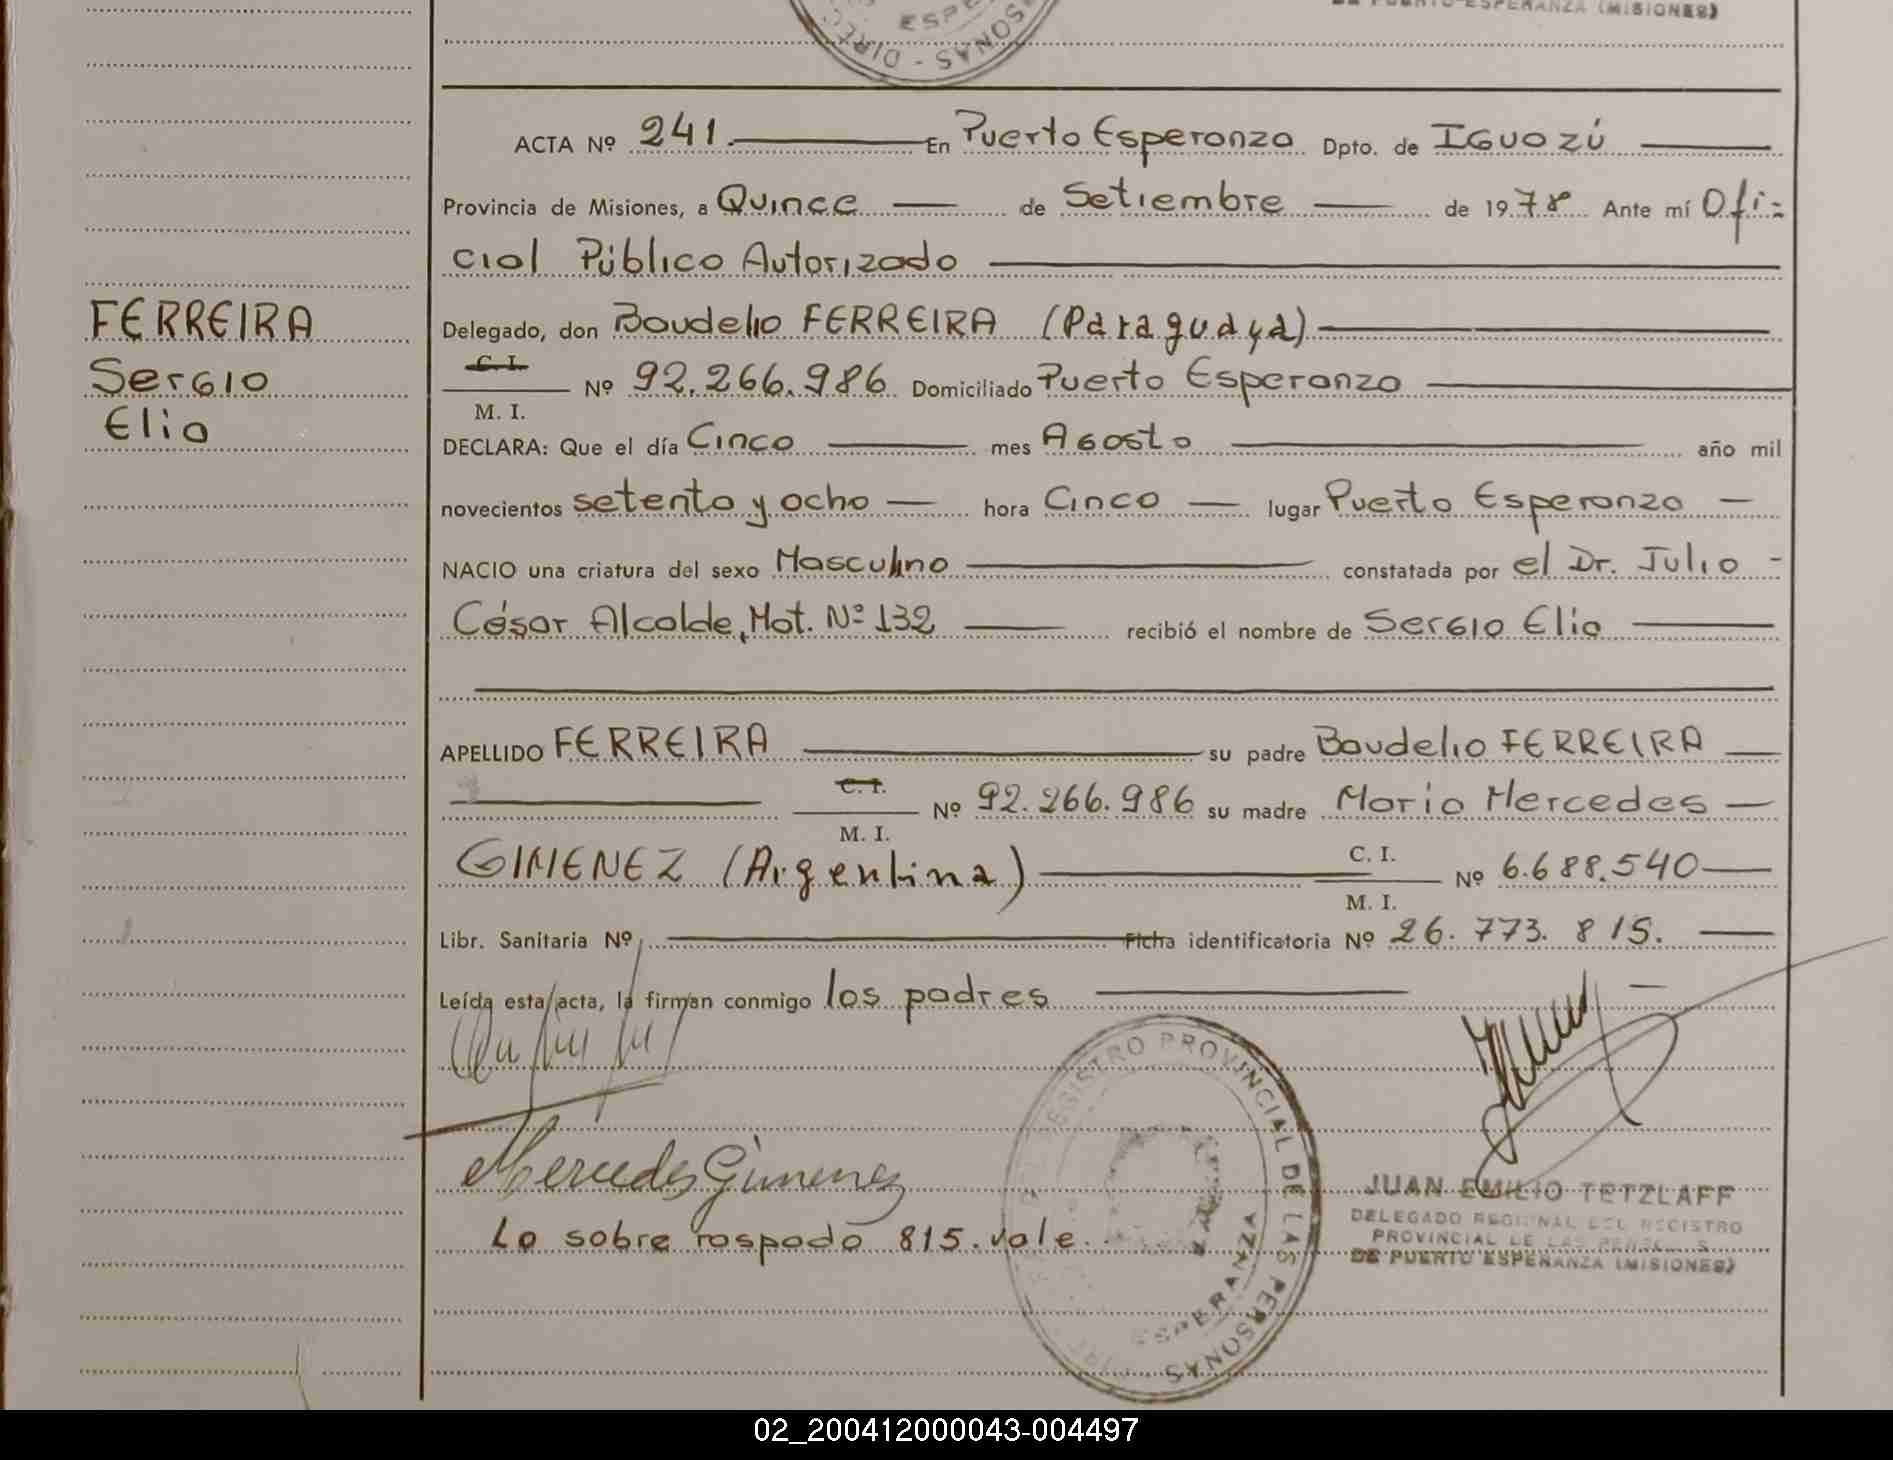 ESPE
DIREC
SONAS -
DE PUERTO ESPERANZA (MISIONES)
ACTA Nº 241. En Puerto Esperanza Dpto. de IGUAZÚ
Provincia de Misiones, a Quince de Setiembre de 1978 Ante mí Ofi-
cial Público Autorizado
Delegado, don Baudelio FERREIRA (Paraguaya)
C. I.
M. I. Nº 92.266.986 Domiciliado Puerto Esperanza
DECLARA: Que el día Cinco mes Agosto año mil
novecientos setenta y ocho hora Cinco lugar Puerto Esperanza
NACIO una criatura del sexo Masculino constatada por el Dr. Julio
César Alcalde, Mat. Nº 132 recibió el nombre de Sergio Elio
APELLIDO FERREIRA su padre Baudelio FERREIRA
C. I.
M. I. Nº 92.266.986 su madre Maria Mercedes
GIMENEZ (Argentina) C. I.
M. I. Nº 6.688.540
Libr. Sanitaria Nº Ficha identificatoria Nº 26.773.815.
Leída esta acta, la firman conmigo los padres
Mercedes Gimenez
Lo sobre raspado 815. vale.
FERREIRA
Sergio
Elio
REGISTRO PROVINCIAL DE LAS PERSONAS
ESPERANZA
JUAN EMILIO TETZLAFF
DELEGADO REGIONAL DEL REGISTRO
PROVINCIAL DE LAS PERSONAS
DE PUERTO ESPERANZA (MISIONES)
02_200412000043-004497